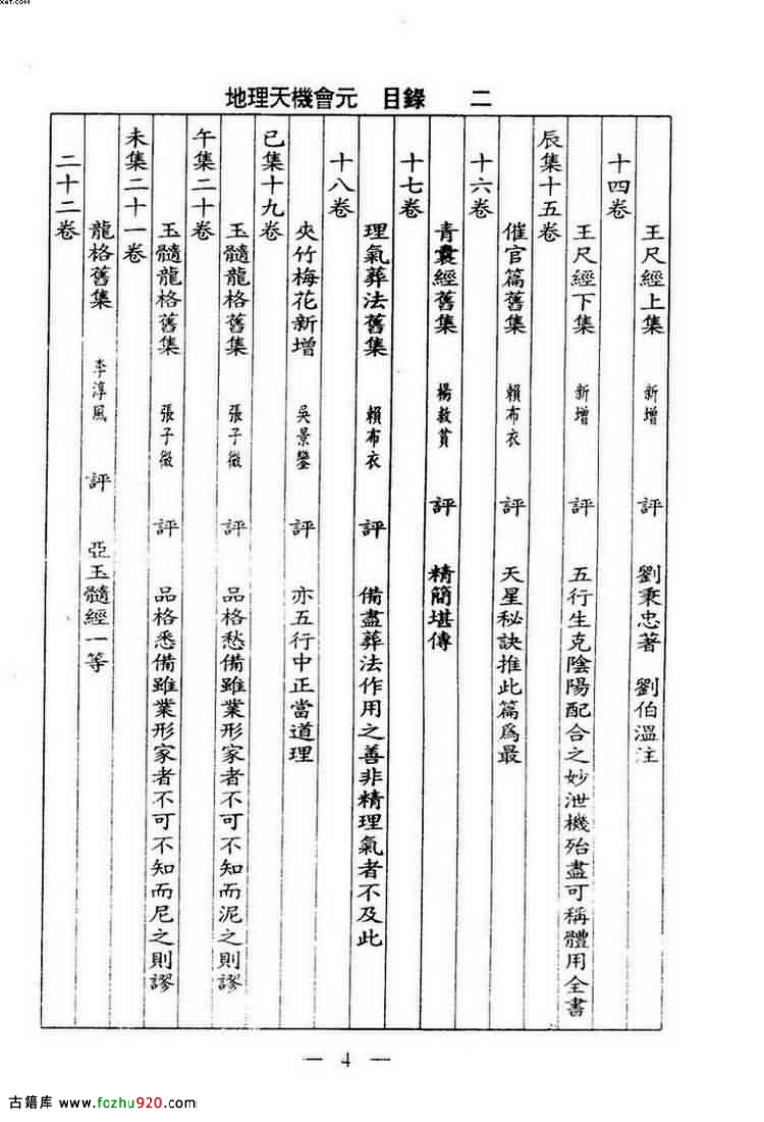 xet.com
地理天機會元 目錄 二
王尺經上集 新增 評 劉秉忠著 劉伯溫注
十四卷
王尺經下集 新增 評 五行生克陰陽配合之妙泄機殆盡可稱體用全書
辰集十五卷
催官篇舊集 賴布衣 評 天星秘訣推此篇爲最
十六卷
青囊經舊集 楊救貧 評 精簡堪傳
十七卷
理氣葬法舊集 賴布衣 評 備盡葬法作用之善非精理氣者不及此
十八卷
夾竹梅花新增 吳景鑾 評 亦五行中正當道理
巳集十九卷
玉髓龍格舊集 張子微 評 品格愁備雖業形家者不可不知而泥之則謬
午集二十卷
玉髓龍格舊集 張子微 評 品格悉備雖業形家者不可不知而尼之則謬
未集二十一卷
龍格舊集 李淳風 評 亞玉髓經一等
二十二卷
— 4 —
古籍库 www.fozhu920.com